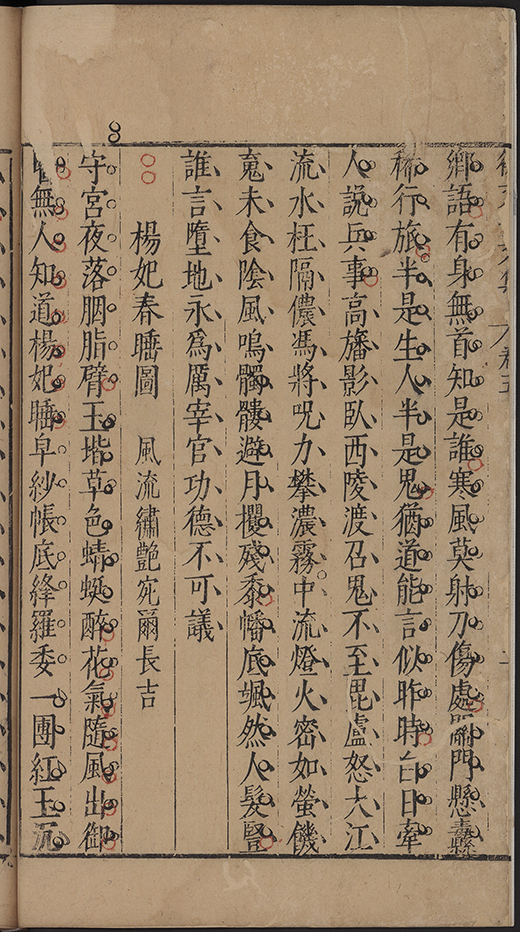 文集 卷五
鄉語有身無首知是誰寒風莫射刀傷處關門懸纛
稀行旅半是生人半是鬼猶道能言似昨時白日牽
人說兵事高旛影臥西陵渡召鬼不至毘盧怒大江
流水枉隔儂馮將呪力攀濃霧中流燈火密如螢饑
䰟未食陰風鳴髑髏避月攫殘黍幡底颯然人髮竪
誰言墮地永爲厲宰官功德不可議
楊妃春睡圖 風流繡艷宛爾長吉
守宮夜落胭脂臂玉堦草色蜻蜓醉花氣隨風出御
無人知道楊妃睡皁紗帳底絳羅委一團紅玉沉